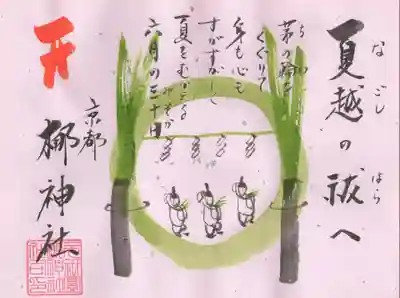 夏越の祓へ
なごし はら
茅の輪を
ち わ
くぐりて
身も心も
すがすがし
夏をむかえる
六月の三十日
みそか
京都
梛神社